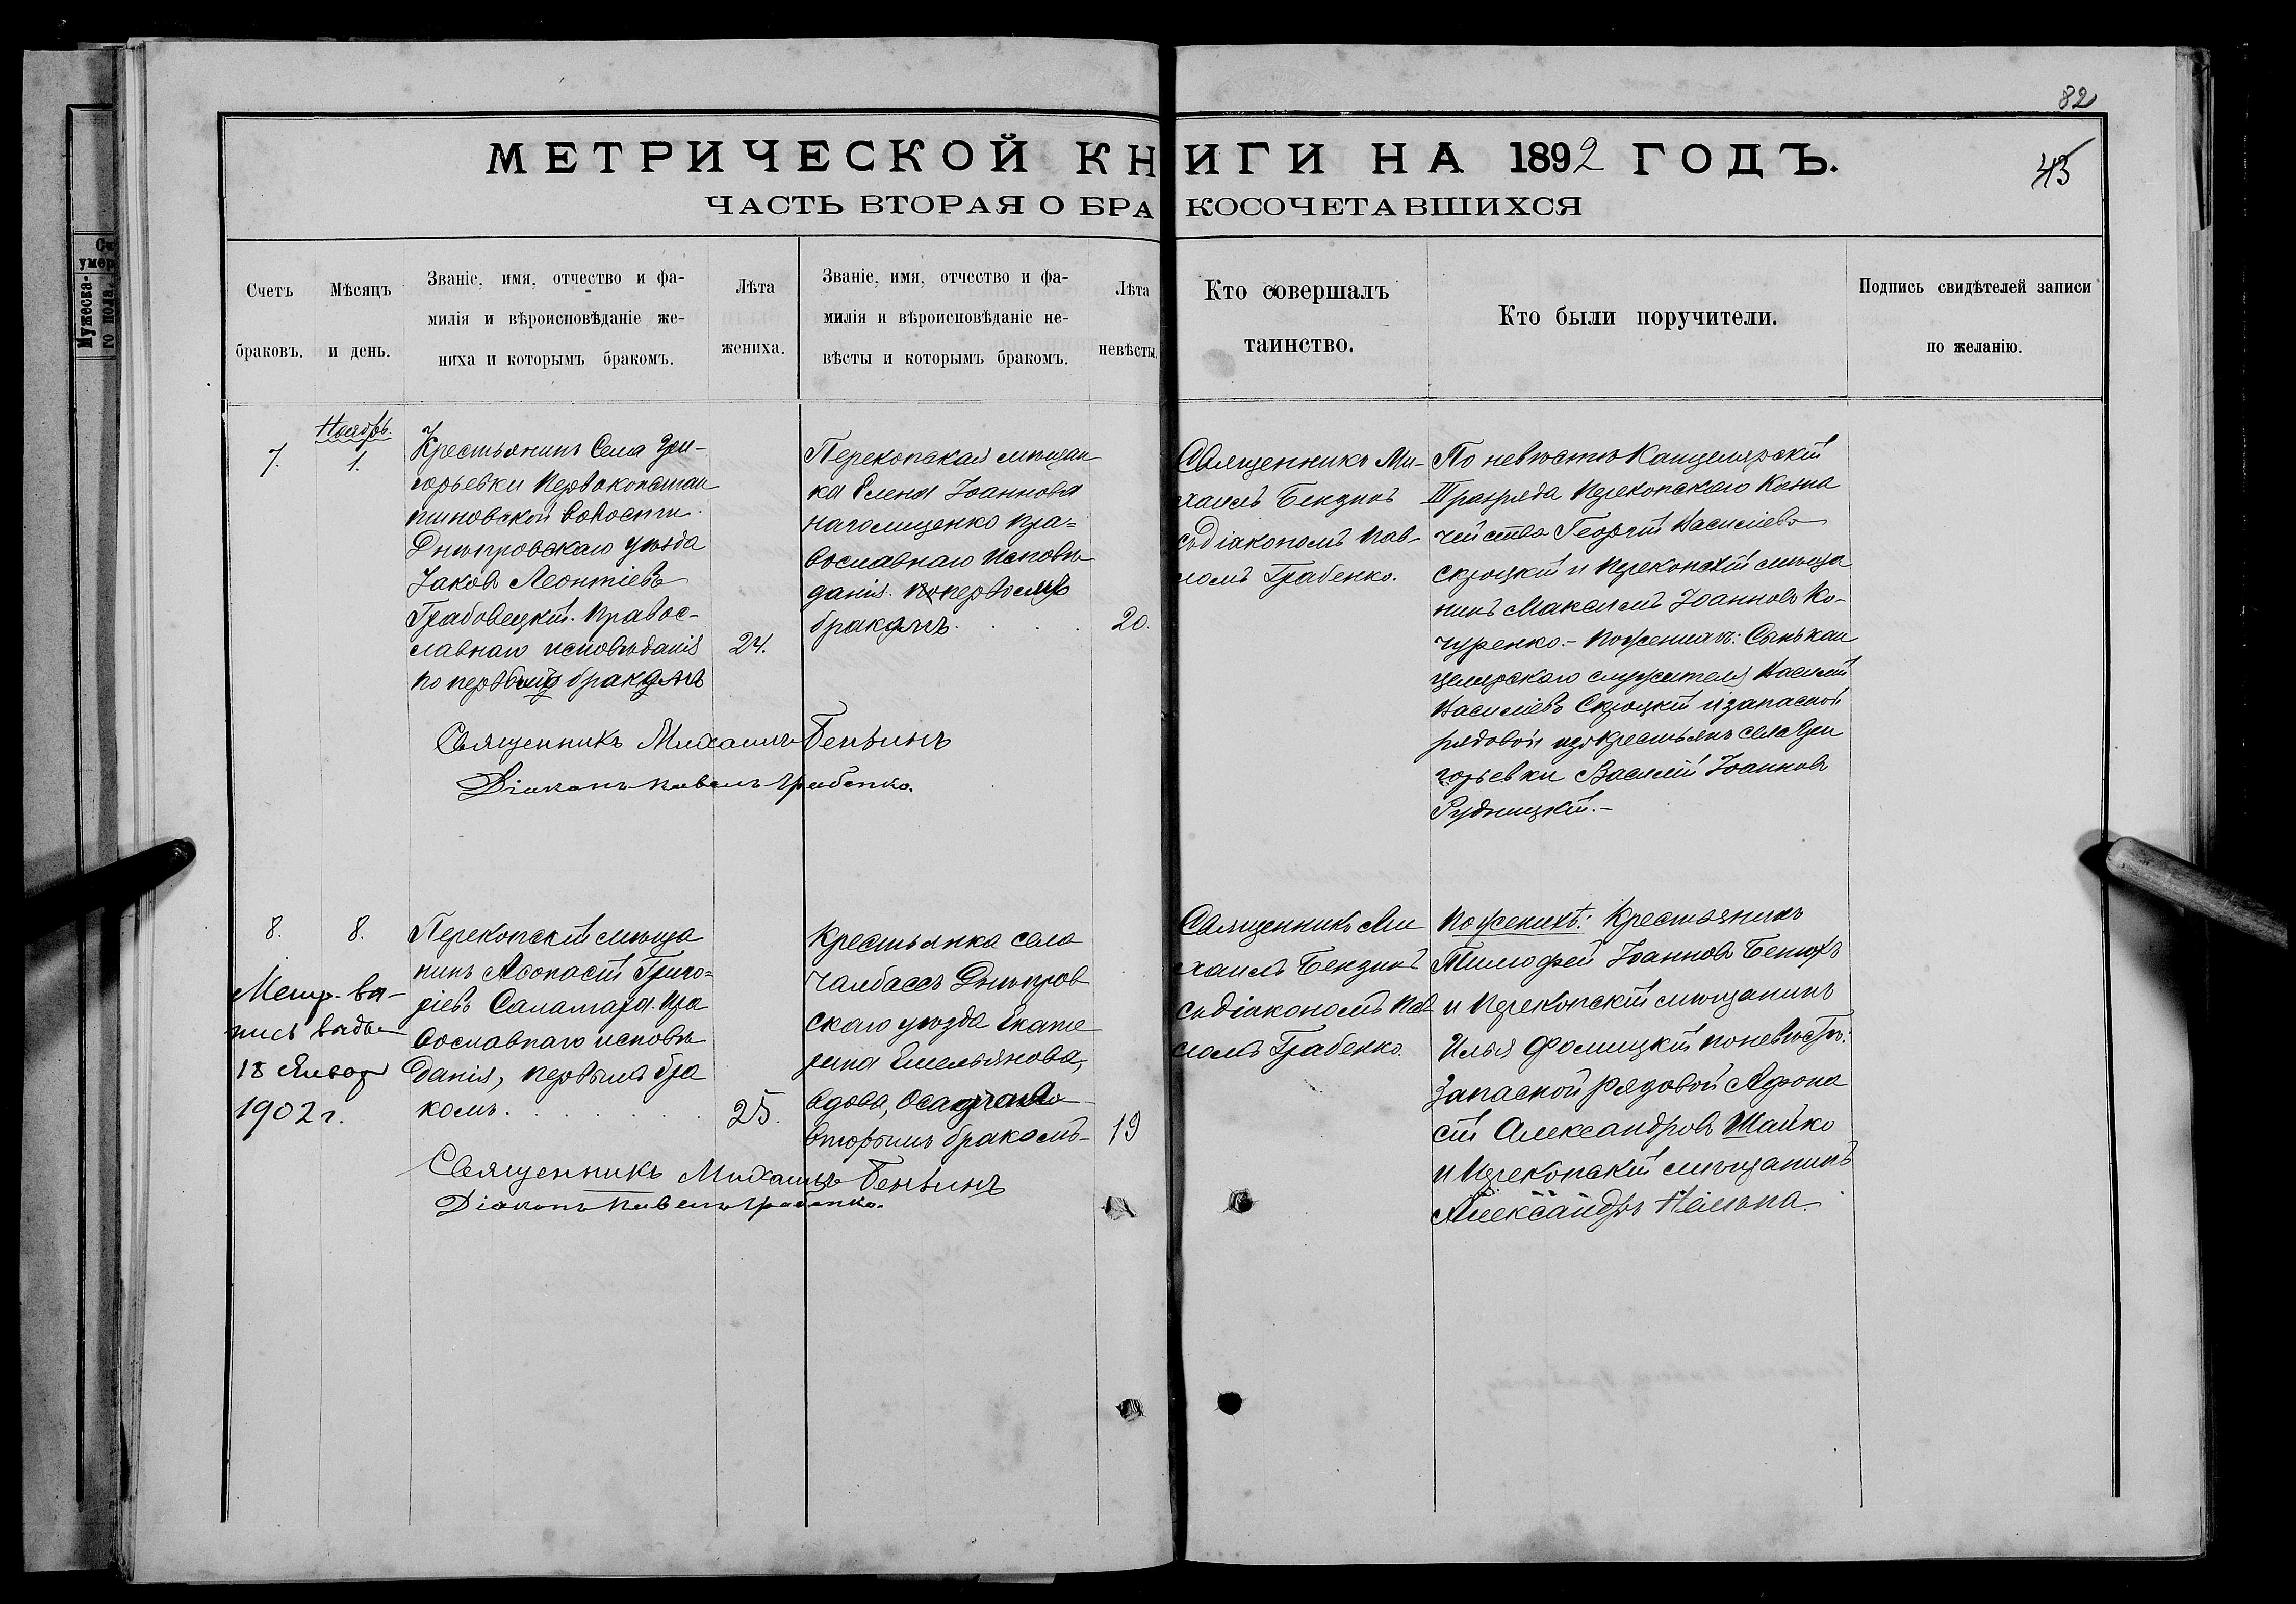 82
МЕТРИЧЕСКОЙ КНИГИ НА 1892 ГОДЪ.
43
ЧАСТЬ ВТОРАЯ О БРАКОСОЧЕТАВШИХСЯ
Счетъ
браковъ.
Мѣсяцъ
и день.
Званіе, имя, отчество и фа-
милія и вѣроисповѣданіе же-
ниха и которымъ бракомъ.
Лѣта
жениха.
Званіе, имя, отчество и фа-
милія и вѣроисповѣданіе не-
вѣсты и которымъ бракомъ.
Лѣта
невѣсты.
Кто совершалъ
таинство.
Кто были поручители.
Подпись свидѣтелей записи
по желанію.
Мужеска-
го пола.
7.
Ноябрь.
1.
Крестьянинъ Села Гри-
горьевки Первоконстан
тиновской волости
Днѣпровскаго уѣзда
Іаковъ Леонтіевъ
Грабовецкій. Правос-
лавнаго исповѣданія
по первый бракомъ
24.
Перекопская мѣщан
ка Елена Іоаннова
пра-
вославнаго исповѣ
данія. по первому
бракомъ.
20.
Священникъ Ми-
хаилъ Бензинъ
съ діакономъ Пав-
ломъ Грабенко.
По невѣстѣ Канцелярскій
III разряда Перекопскаго Казна
чейства Георгій Васильевъ
Скроцкій и Перекопскій мѣща
нинъ Максимъ Іоанновъ Ко-
чуренко.- По женихѣ: Сынъ кан
целярскаго служителя Василій
Васильевъ Скроцкій и запасной
рядовой изъ крестьянъ села Гри
горьевки Василій Іоанновъ
Рудницкій.-
Священникъ Михаилъ Бензинъ
Діаконъ Павелъ Грабенко.
8.
8.
Метр. вы-
пись выдан
18 Январ
1902 г.
Перекопскій мѣща
нинъ Аѳонасій Григо-
ріевъ Саламаха. Пра
вославнаго исповѣ
данія, первымъ бра
комъ.
25.
Крестьянка села
Чалбассъ Днѣпров
скаго уѣзда Екате
рина Емельянова,
вдова,
вторымъ бракомъ-
19
Священникъ Ми
хаилъ Бензинъ
съ діакономъ Пав
ломъ Грабенко.
По женихѣ: Крестьянинъ
Тимофей Іоанновъ Бетюхъ
и Перекопскій мѣщанинъ
Илья Фомицкій по невѣстѣ:
Запасной рядовой Афона
сій Александровъ Шайко
и Перекопскій мѣщанинъ
Александръ
Священникъ Михаилъ Бензинъ
Діаконъ Павелъ Грабенко.